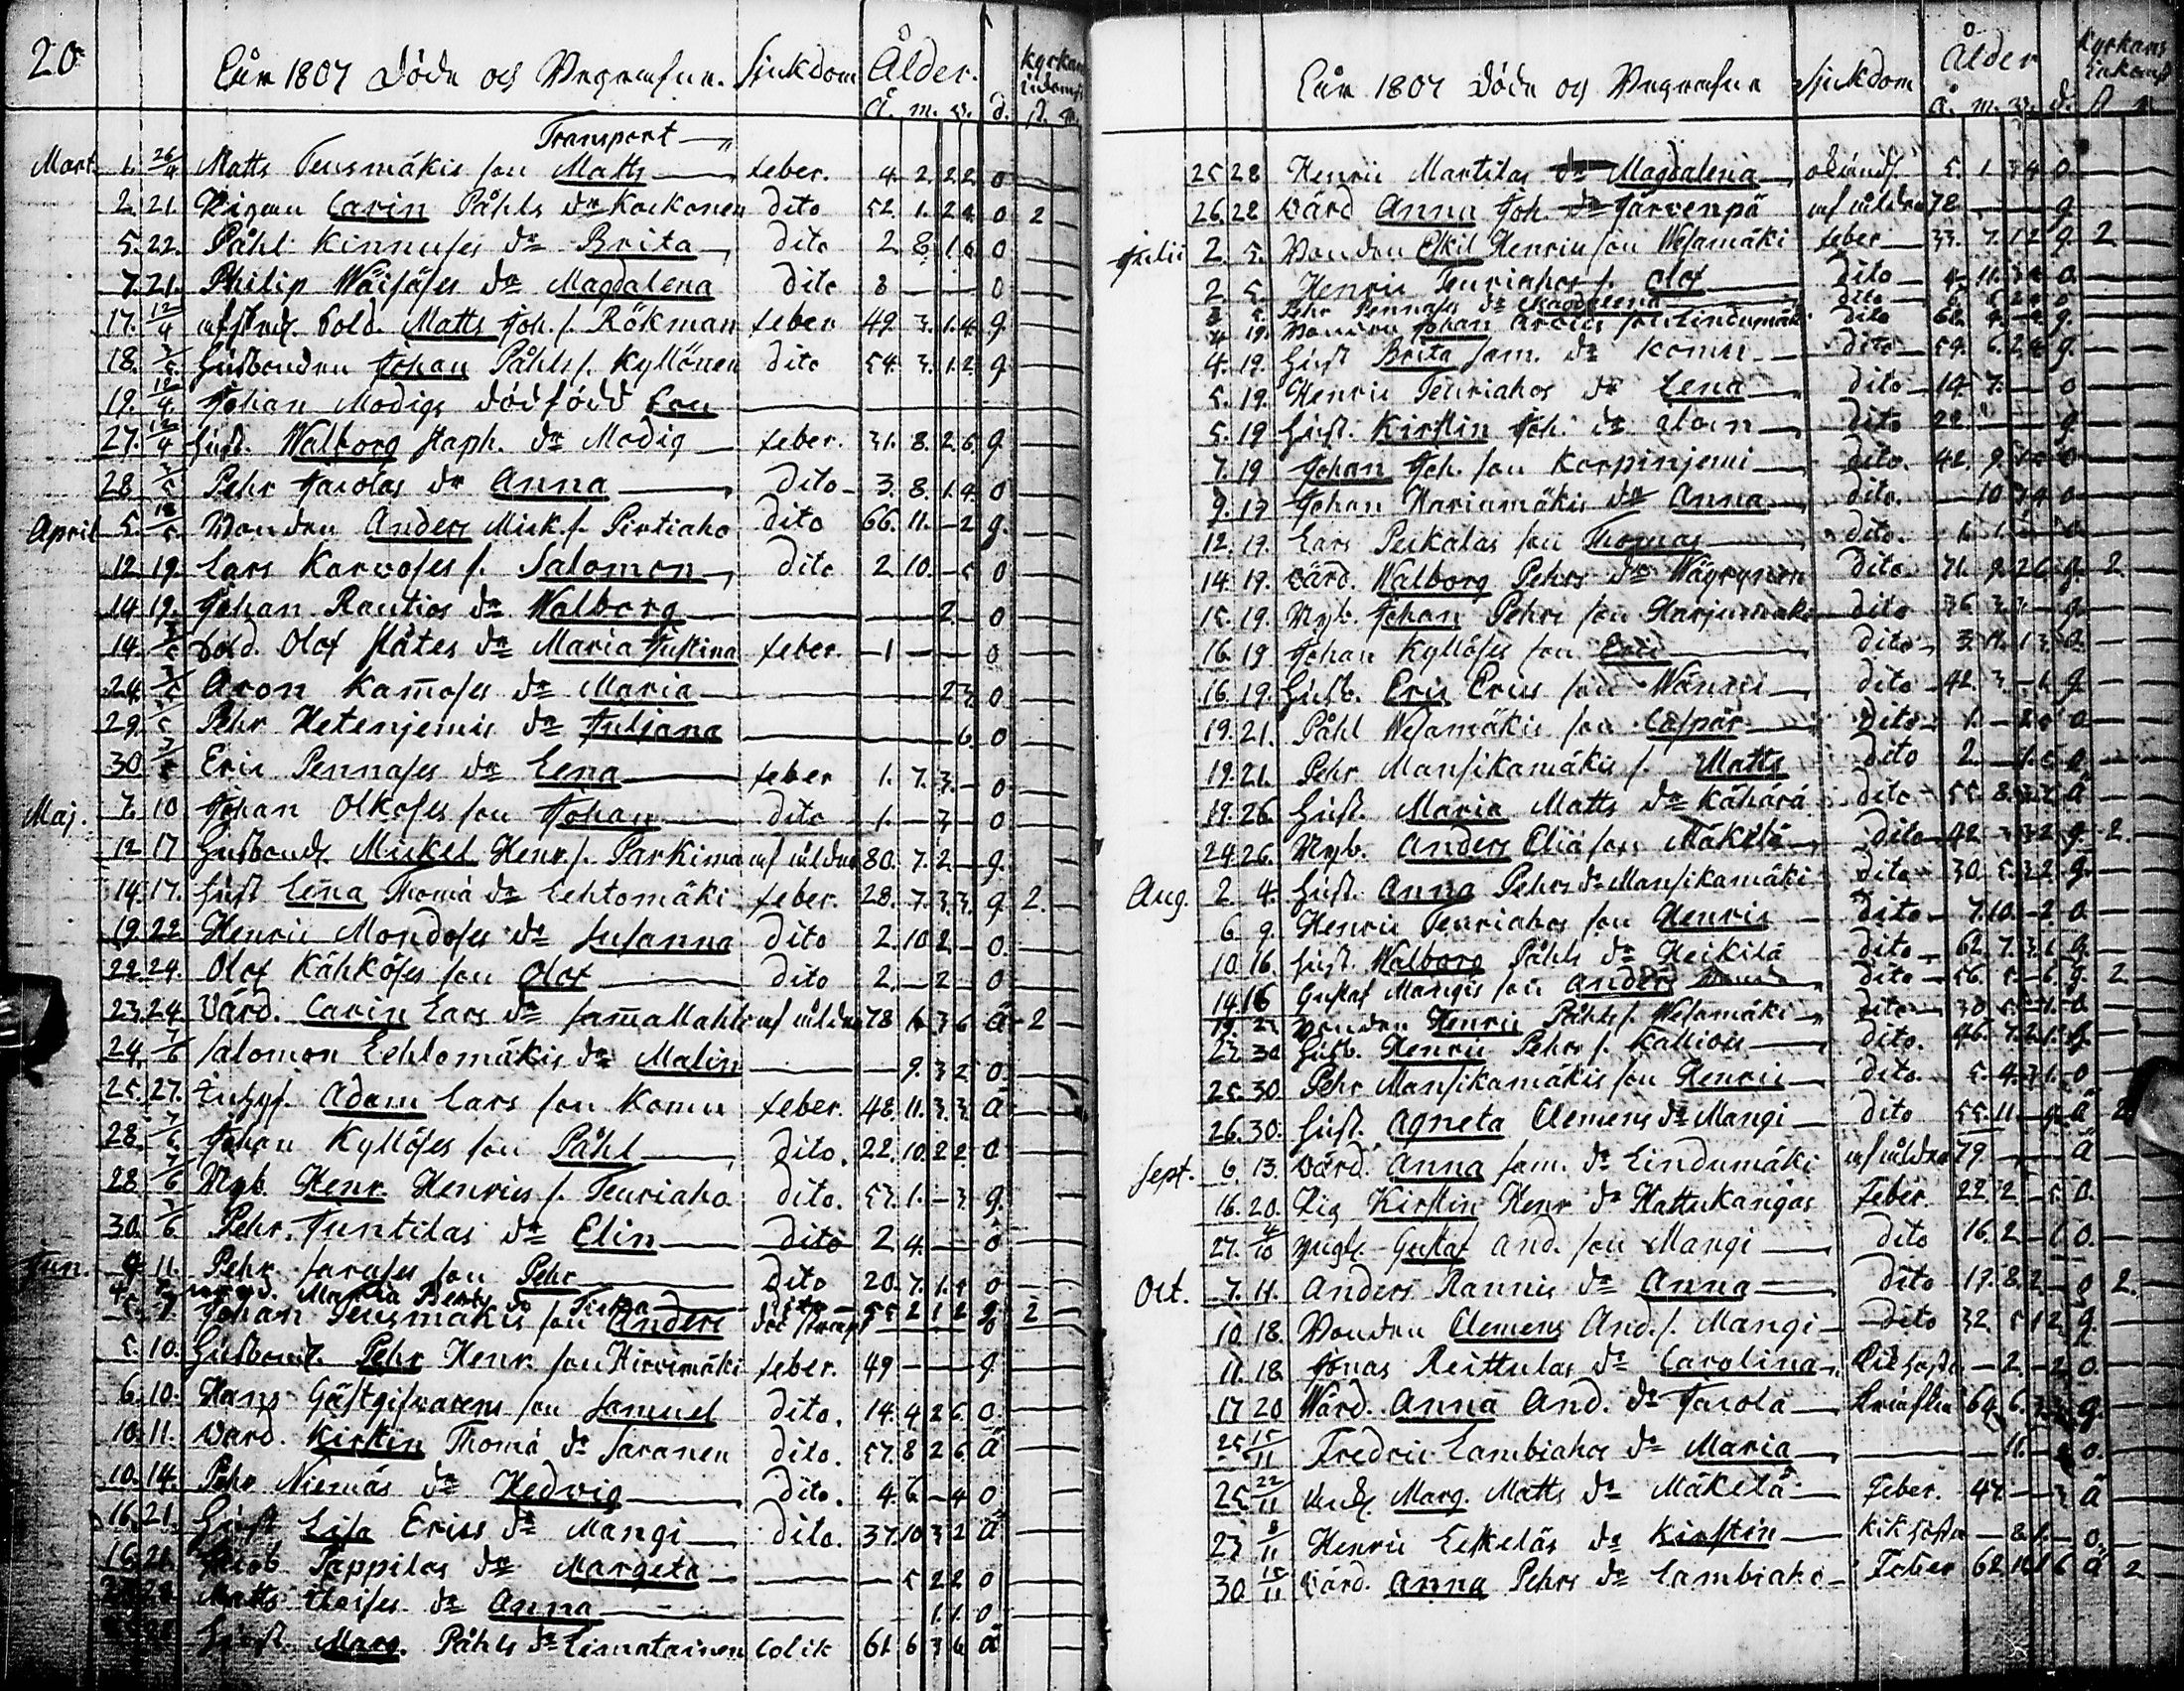 20
År 1807 Döde och Begrafne. Sjukdom Ålder. kyrkans
Å. m. v. d.
Transport
Mart. 1. 26/4 Matts Teusmäkis son Matts feber. 4. 2. 2 2. o
2. 21. Pigan Carin Påhls dr Kockonen dito 52. 1. 2 4. o 2
5. 22. Påhl Kinnuses dr Brita dito 2. 8. 1 6 o
7. 21. Philip Wäisäses dr Magdalena dito 8 o
17. 12/4 Sold. Matts Joh. s. Rökman feber 49. 3. 1. 4. g.
18. 3/5 Husbonden Johan Påhls s. Kyllönen dito 54. 3. 1. 2. g.
19. 12/4 Johan Modigs dödfödd Son
27. 12/4 Hust. Walborg Staph. dr Modig feber. 31. 8. 2 6. g.
28 3/5 Pehr Jacolas dr Anna dito 3. 8. 1. 4. o
April 5. Bonden Anders Mick. s. Pirtiaho dito 66. 11. - 2 g.
12 19. Lars Karvoses s. Salomon dito 2. 10. - 5 o
14 19. Johan Rautios dr Walborg 2. o
14. 3/5 Sold. Olof Ståtes dr Maria Justina feber. 1 o
24. 3/5 Aron Kamoses dr Maria 2 3. o
29. Pehr Hetenjemis dr Juliana 6. o
30 Eric Pennases dr Lena feber 1. 7. 3. - o
Maj. 7. 10 Johan Olkoses son Johan dito 1. - 3 - o
12 17 Husbond. Mickel Henr. s. Parkima af ålder 80. 7. 2 - g.
14. 17. Hust Lena Thomä dr Lehtomäki feber. 28. 7. 3. 3. g. 2.
19. 22 Henric Mondoses dr Susanna dito 2. 10 2 - o.
22. 24. Olof Kähköses son Olof dito 2. - 2 - o
23. 24. Värd. Carin Lars dr af ålder 78 3 6 ä 2
24. 7/6 Salomon Lehtomäkis dr Malin 9. 3 2 o.
25. 27. Adam Lars son Komu feber. 48. 11. 3. 3. ä
28. 7/6 Johan Kyllöses son Påhl dito. 22. 10. 2 2. o
28 7/6 Ngb. Henr. Henrics s. Teuriaho dito. 53. 1. - 3. g.
30. 7/6 Pehr Juntilas dr Elin dito 2 4. o
Jun. 4 11. Pehr Sarases son Pehr dito 20. 7. 1. 4 o
Martha Bengts dr Turka dito 55 2 1 2 g. 2
Johan Teusmäkis son Anders
5. 10. Husbond. Pehr Henr. son Hirvimäki feber. 49 g.
6. 10. Hans Gästgifvarens son Samuel dito. 14. 4 2 6. o.
10. 11. Värd. Kirstin Thomä dr Saranen dito. 57. 8 2 6 ä
10. 14. Pehr Niemäs dr Hedvig dito. 4. 6. - 4 o
16. 21. Hust Lisa Erics dr Mangi dito. 37. 10 3 2 ä
16. 21. Jacob Pappilas dr Margeta 5 2 2 o
Matts dr Anna 1. 1. o
Hust. Marg. Påhls dr Limatainen colik 61 6 3 6 ä
År 1807 Döde och Begrafne Sjukdom Ålder kyrkans inkomst
Å. m. v. d.
25 28 Henric Martilas dr Magdalena okänd. 5. 1 3 4 o
26. 28 Värd Anna Joh. dr Järvenpä af ålder 78 g.
Julii 2. 5. Bonden Eskil Henrics son Wesamäki feber 33. 7. 1 2 g. 2
2 5. Henric Teuriahos s. Olof dito 4. 11. 3 o
5. Pehr Pennases dr Magdalena dito o
4 19. Bonden Johan son Lindumäki dito g.
4. 19. Hust Brita Sam. dr Komu dito 59. 6. 2 4 g.
5. 19. Henric Teuriahos dr Lena dito 14. 7. o
5. 19 Hust. Kirstin Joh. dr dito 22. g.
7. 19 Johan Joh. son Korpinjemi dito. 42. 9. o
9. 19 Johan Hariumäkis dr Anna dito. 10 3 4 o
12. 19. Lars Peikalas son Thomas dito. o
14. 19. Värd. Walborg Pehrs dr Wäyrynen dito 71. 9. 2 6 g. 2
15. 19. Ngb. Johan Pehrs son Harjumäki dito 36 3. g.
16. 19 Johan Kyllöses son Eric dito 3. 11. 1 3. o.
16. 19. Husb. Eric Erics son Wänni dito 42. 3. g.
19. 21. Påhl Wesamäkis son Caspar dito 1. o
19. 21. Pehr Mansikamäkis s. Matts dito 2. o
19. 26 Hust. Maria Matts dr Kähärä dito 55. 8. 3 2 ä
24 26 Ngb. Anders Eliä son Mäkelä dito 42 3 3 2 g. 2.
Aug. 2 4. Hust. Anna Pehrs dr Mansikamäki dito 30. 5. 3 2. g.
6 9. Henric Teuriahos son Henric dito 7. 10. - 2 o
10. 16. Hust. Walborg Påhls dr Heikilä dito 62. 7. 3 1 g.
14 16 Gustaf Mangis son Anders dito 56. 5. - 6 g. 2
Bonden Henric Påhls s. Wesamäki dito 30 o
23 30 Husb. Henric Pehrs s. Kallioin dito. 46. 7. 2 1. g.
25. 30 Pehr Mansikamäkis son Henric dito. 5. 4. 3 1. o
26. 30. Hust. Agneta Clemens dr Mangi dito 55 11 ä 2
Sept. 6. 13. Värd. Anna Sam. dr Lindumäki af ålder 79. ä
16. 20. Pig Kirstin Henr dr Hattukangas feber. 22 2 - 5. o.
27. 4/10 yngl. Gustaf And. son Mangi dito 16. 2 - 1 o.
Oct. 7. 11. Anders Rannis dr Anna dito 19. 8. 2 - o 2.
10 18. Bonden Clemens And. s. Mangi dito 32. 5 1 2 g.
11. 18. Jonas Reittulas dr Carolina Kikhosta - 2. - 2 o.
17 20 Värd. Anna And. dr Jacola 64. 6. g.
25 15/11 Fredric Lambiahos dr Maria 11. o.
25 22/11 Marg. Matts dr Mäkelä feber. 47 3 ä
23 8/11 Henric Eskeläs dr Kirstin kikhosta 8. 1. o.
30 15/11 Värd. Anna Pehrs dr Lambiaho Feber 62 10 1 6 ä 2